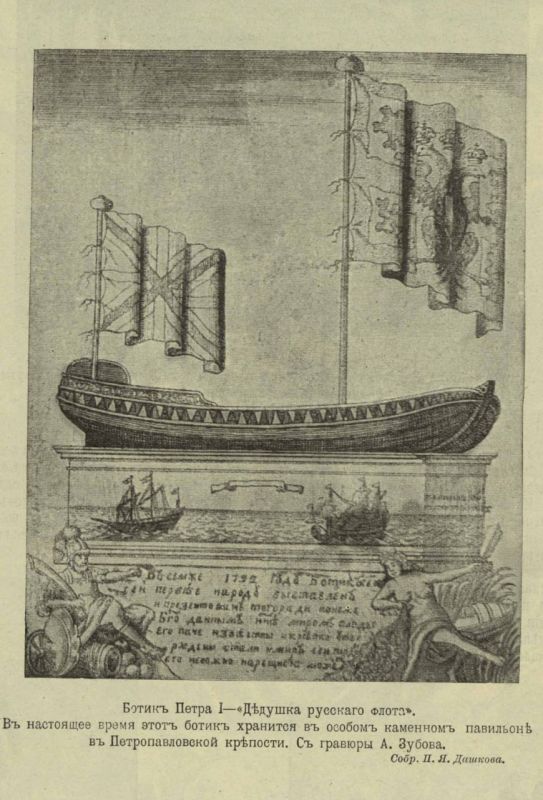 Въ семже 1722 годѣ Ботикъ
первѣе народѣ выставленъ
и презентованъ тогоради понеже
Б҃го даннымъ миромъ
его паче извѣстны
рождены стали
его
Ботикъ Петра I—«Дѣдушка русскаго флота».
Въ настоящее время этотъ ботикъ хранится въ особомъ каменномъ павильонѣ
въ Петропавловской крѣпости. Съ гравюры А. Зубова.
Собр. П. Я. Дашкова.